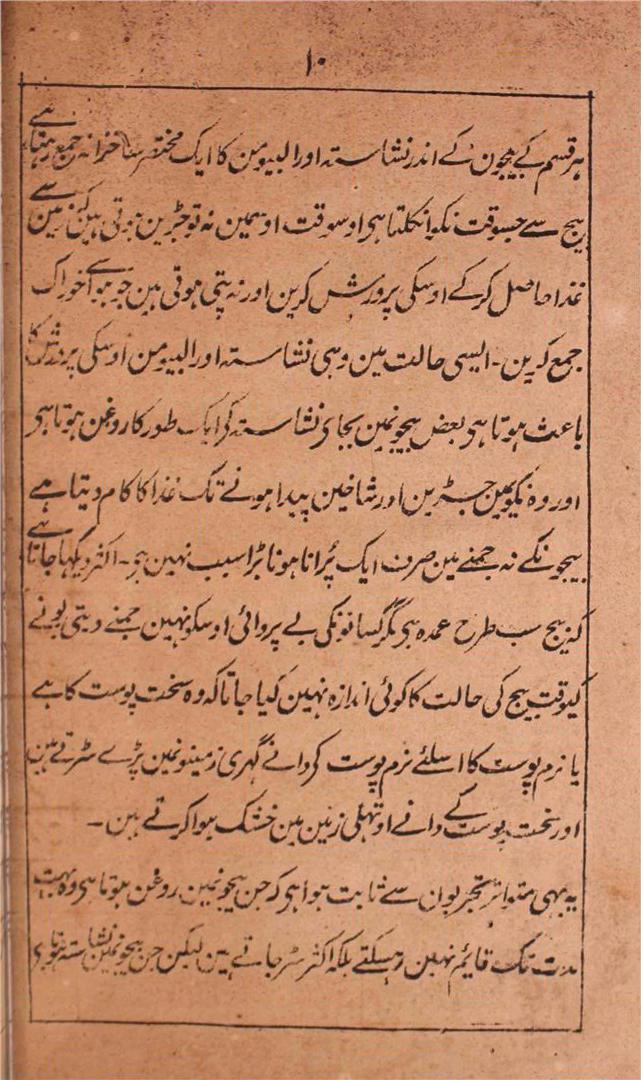 ۱۰
ہر قسم کے بیجون کے اندر نشاستہ اور البیومن کا ایک مختصر سا خزانہ جمع رہتا ہے
بیج سے جسوقت نکوا نکلتا ہی اوسوقت اوسمین نہ تو جڑین ہوتی ہین کہ زمین سے
غذا حاصل کر کے اوسکی پرورش کرین اور نہ پتی ہوتی ہین جو ہوا سے خوراک
جمع کرین۔ ایسی حالت مین وہی نشاستہ اور البیومن اوسکی پرورش کا
باعث ہوتا ہی بعض بیجونمین بجای نشاستہ کے ایک طور کا روغن ہوتا ہی
اور وہ نکویمین جڑین اور شاخین پیدا ہونے تک غذا کا کام دیتا ہے
بیجونکے نہ جمنے مین صرف ایک پُرانا ہونا بڑا سبب نہین ہی۔ اکثر دیکھا جاتا ہے
کہ بیج سب طرح عمدہ ہی مگر کسانونکی بے پروائی اوسکو نہین جمنے دیتی بونے
کیوقت بیج کی حالت کا کوئی اندازہ نہین کیا جاتا کہ وہ سخت پوست کا ہے
یا نرم پوست کا اسلئے نرم پوست کے دانے گہری زمینونمین پڑے سڑتے ہین
اور سخت پوست کے دانے اوتھلی زمین مین خشک ہوا کرتے ہین۔
یہ بھی متواتر تجربون سے ثابت ہوا ہی کہ جن بیجونمین روغن ہوتا ہی وہ بہت
مدت تک قایم نہین رہسکتے بلکہ اکثر سڑ جاتے ہین لیکن جن بیجونمین نشاستہ ہوتا ہی